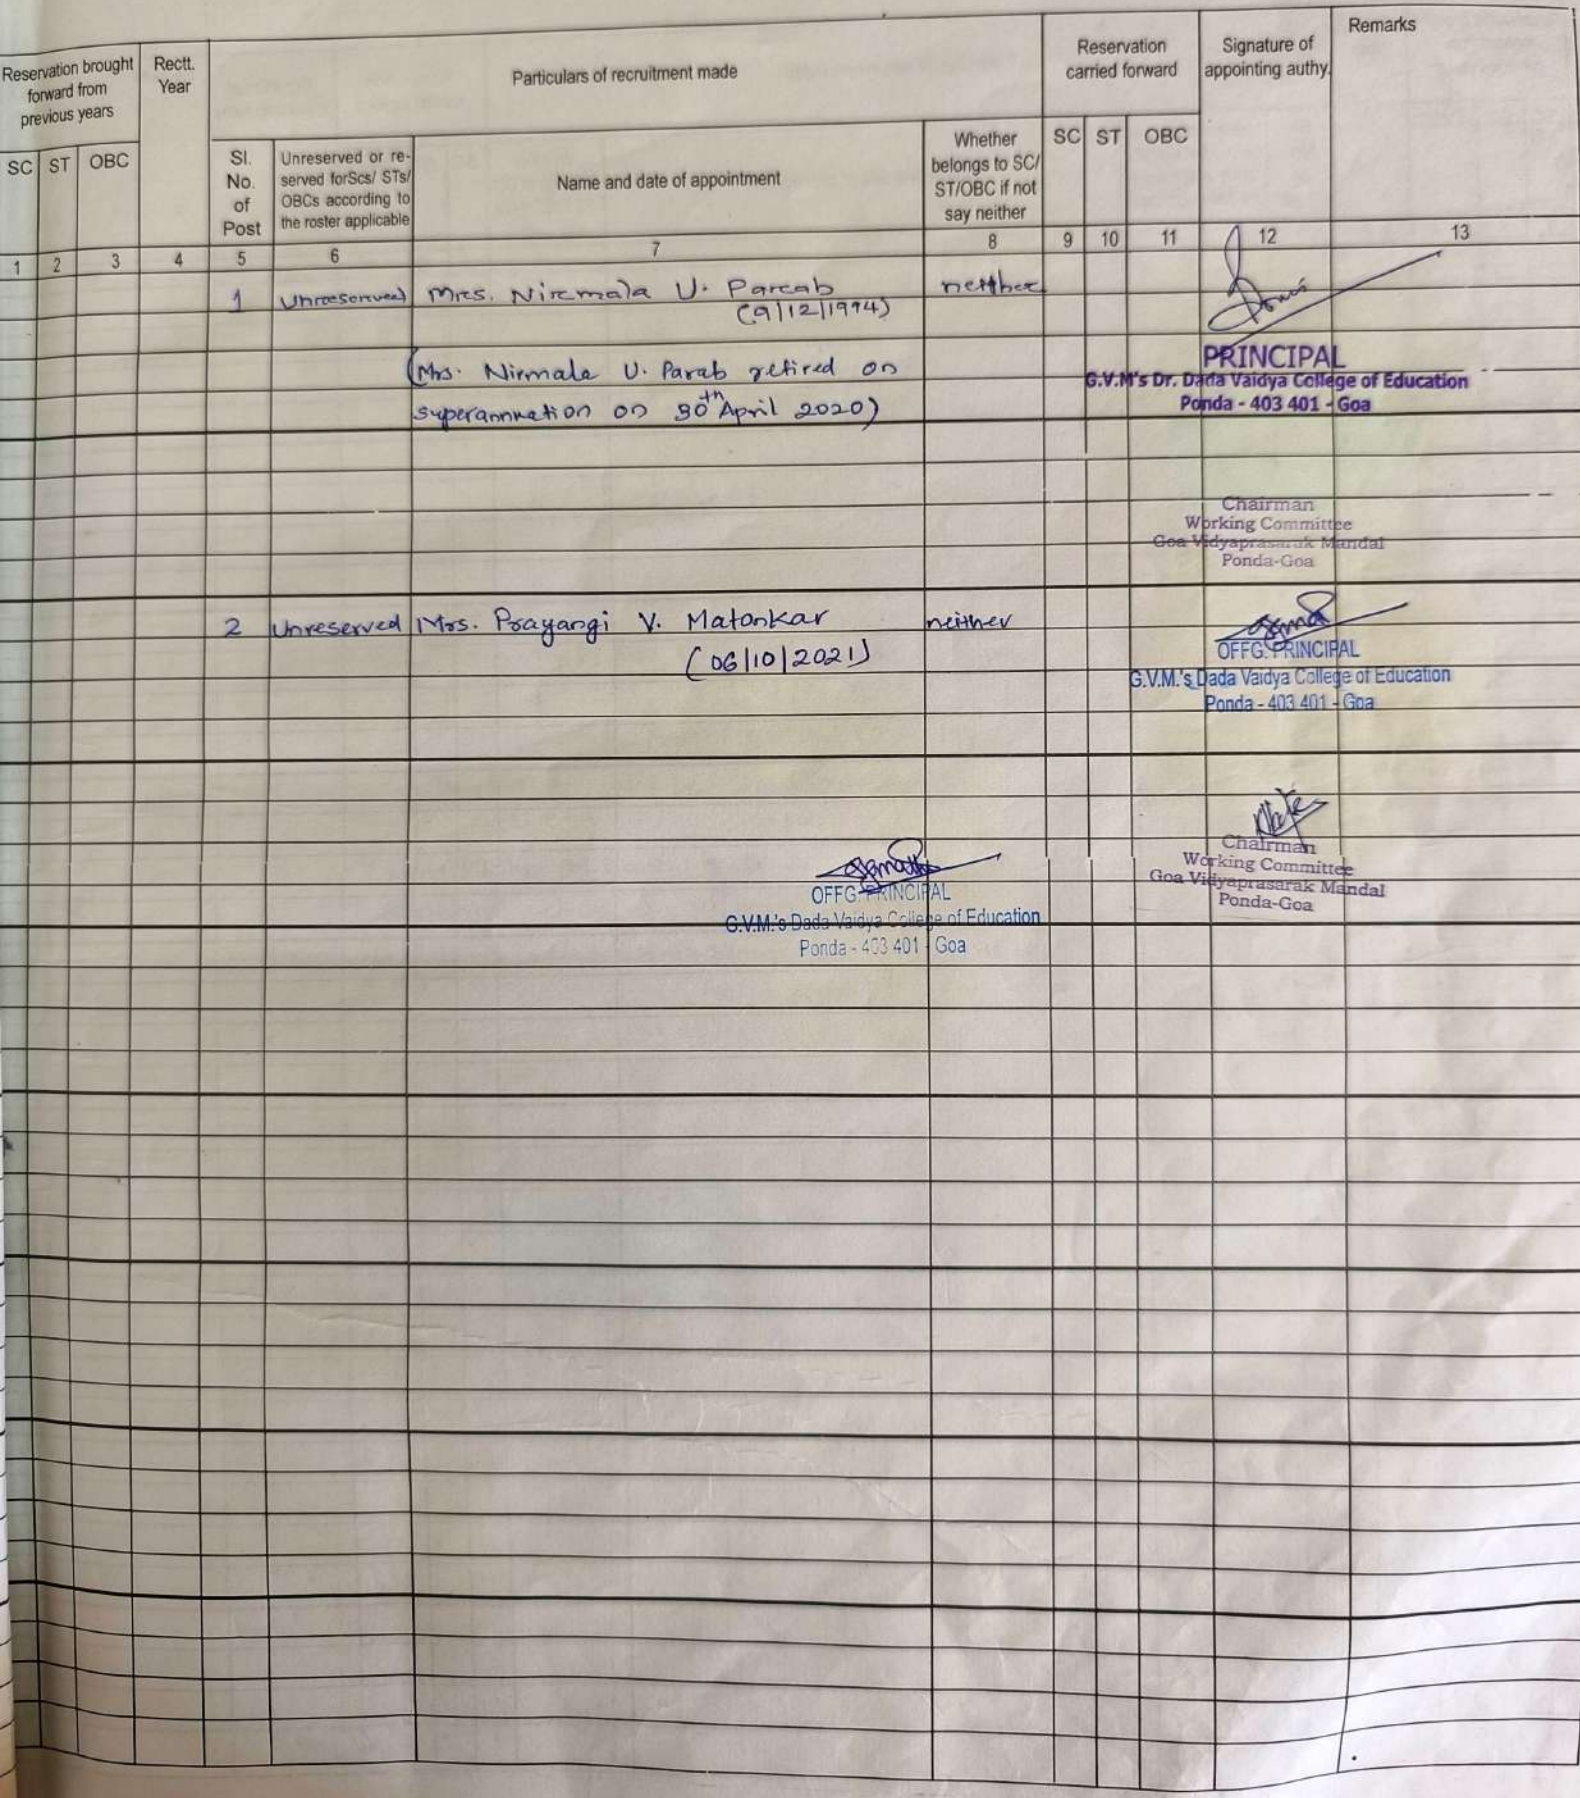 Reservation brought forward from previous years
Rectt. Year
Particulars of recruitment made
Reservation carried forward
Signature of appointing authy.
Remarks
SC ST OBC
Sl. No. of Post
Unreserved or re-served forScs/ STs/ OBCs according to the roster applicable
Name and date of appointment
Whether belongs to SC/ ST/OBC if not say neither
SC ST OBC
1 2 3 4 5 6 7 8 9 10 11 12 13
1 Unreserved Mrs. Nirmala U. Parab neither
(9/12/1994)
(Mrs. Nirmala U. Parab retired on
superannuation on 30th April 2020)
PRINCIPAL
G.V.M's Dr. Dada Vaidya College of Education
Ponda - 403 401 - Goa
Chairman
Working Committee
Goa Vidyaprasarak Mandal
Ponda-Goa
2 Unreserved Mrs. Prayangi V. Matonkar neither
(06/10/2021)
OFFG. PRINCIPAL
G.V.M.'s Dada Vaidya College of Education
Ponda - 403 401 - Goa
Chairman
Working Committee
Goa Vidyaprasarak Mandal
Ponda-Goa
OFFG. PRINCIPAL
G.V.M.'s Dada Vaidya College of Education
Ponda - 403 401 - Goa